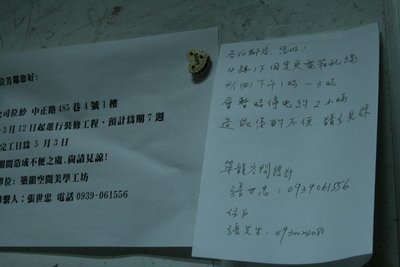 位芳鄰您好:
公司位於 中正路485巷4號1樓
3月12日起進行裝修工程,預計為期7週
完工日為 5月3日
期間造成不便之處,尚請見諒!
單位: 築韻空間美學工坊
聯繫人: 張世忠 電話 0939-061556
各位鄰居 您好!
4號1F因要更換電錶線
4/1(四)下午1時-3時
會暫時停電約2小時
造成您的不便, 請多見諒
築韻空間設計
張世忠: 0939061556
住戶
張先生: